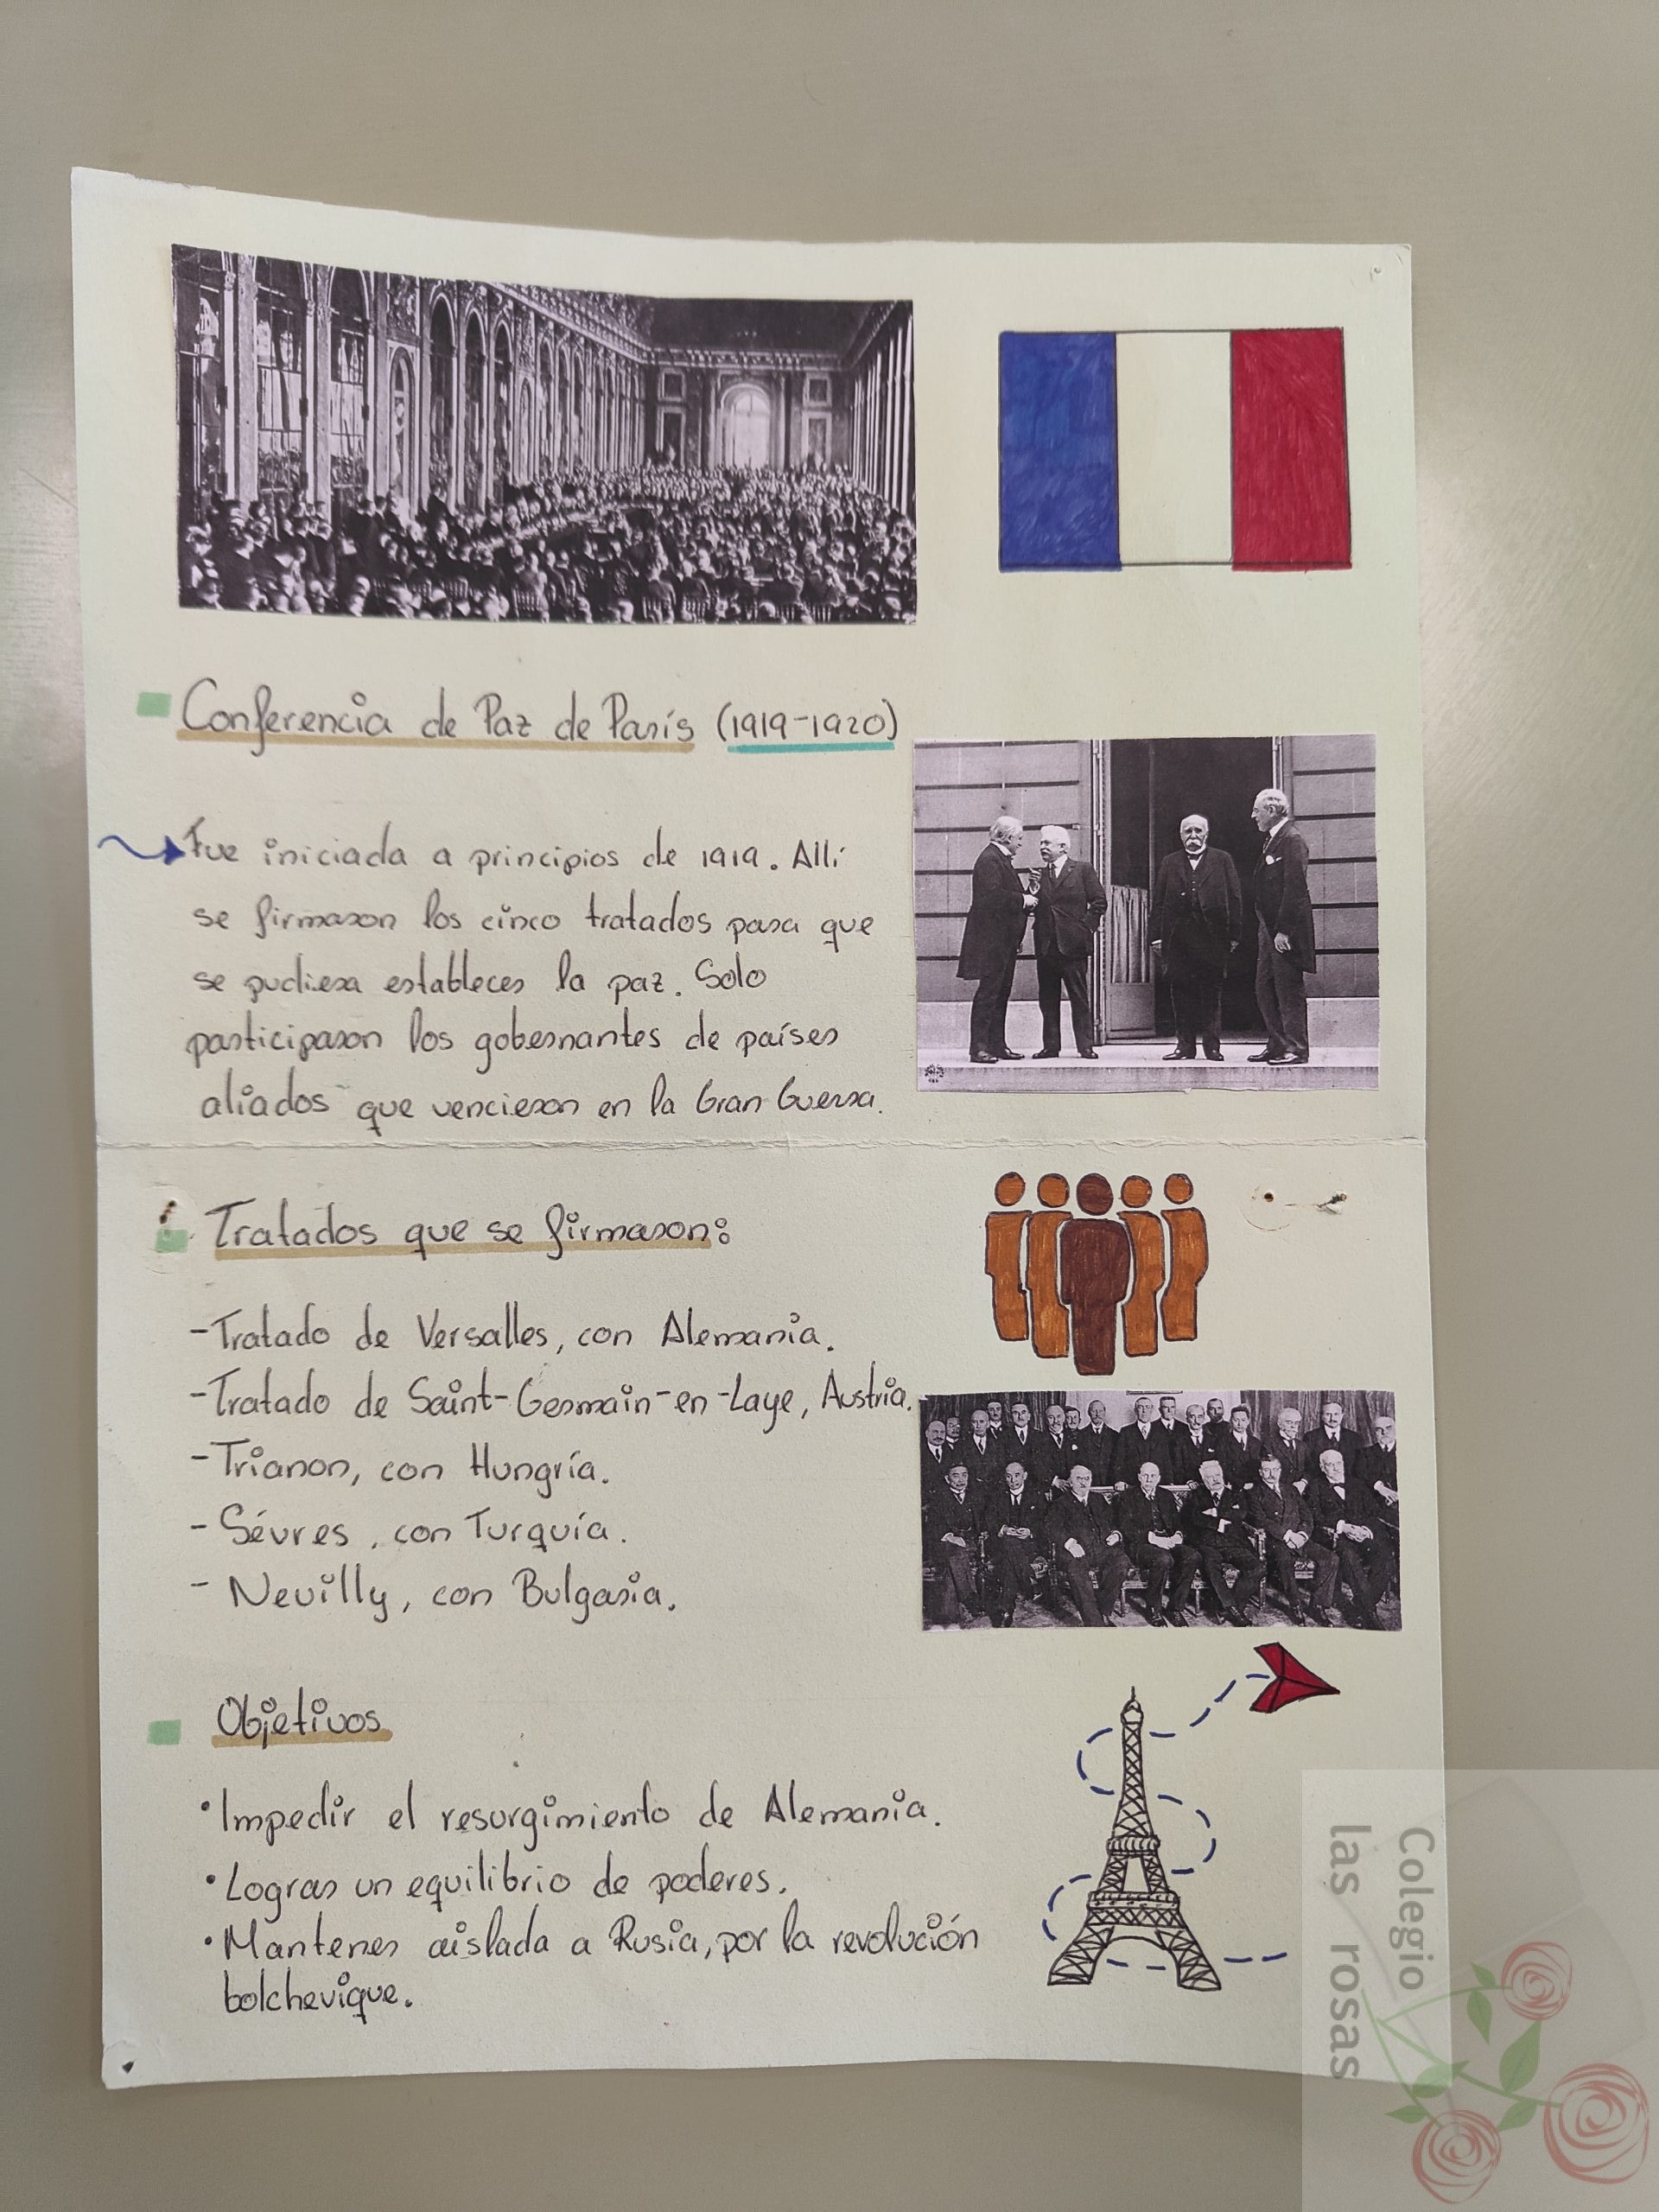 Conferencia de Paz de París (1919-1920)
Fue iniciada a principios de 1919. Allí
se firmaron los cinco tratados para que
se pudiera establecer la paz. Solo
participaron los gobernantes de países
aliados que vencieron en la Gran Guerra.
Tratados que se firmaron:
-Tratado de Versalles, con Alemania.
-Tratado de Saint-Germain-en-Laye, Austria.
-Trianon, con Hungría.
-Sévres, con Turquía.
- Neuilly, con Bulgaria.
Objetivos
•Impedir el resurgimiento de Alemania.
•Lograr un equilibrio de poderes.
•Mantener aislada a Rusia, por la revolución
bolchevique.
Colegio
las rosas